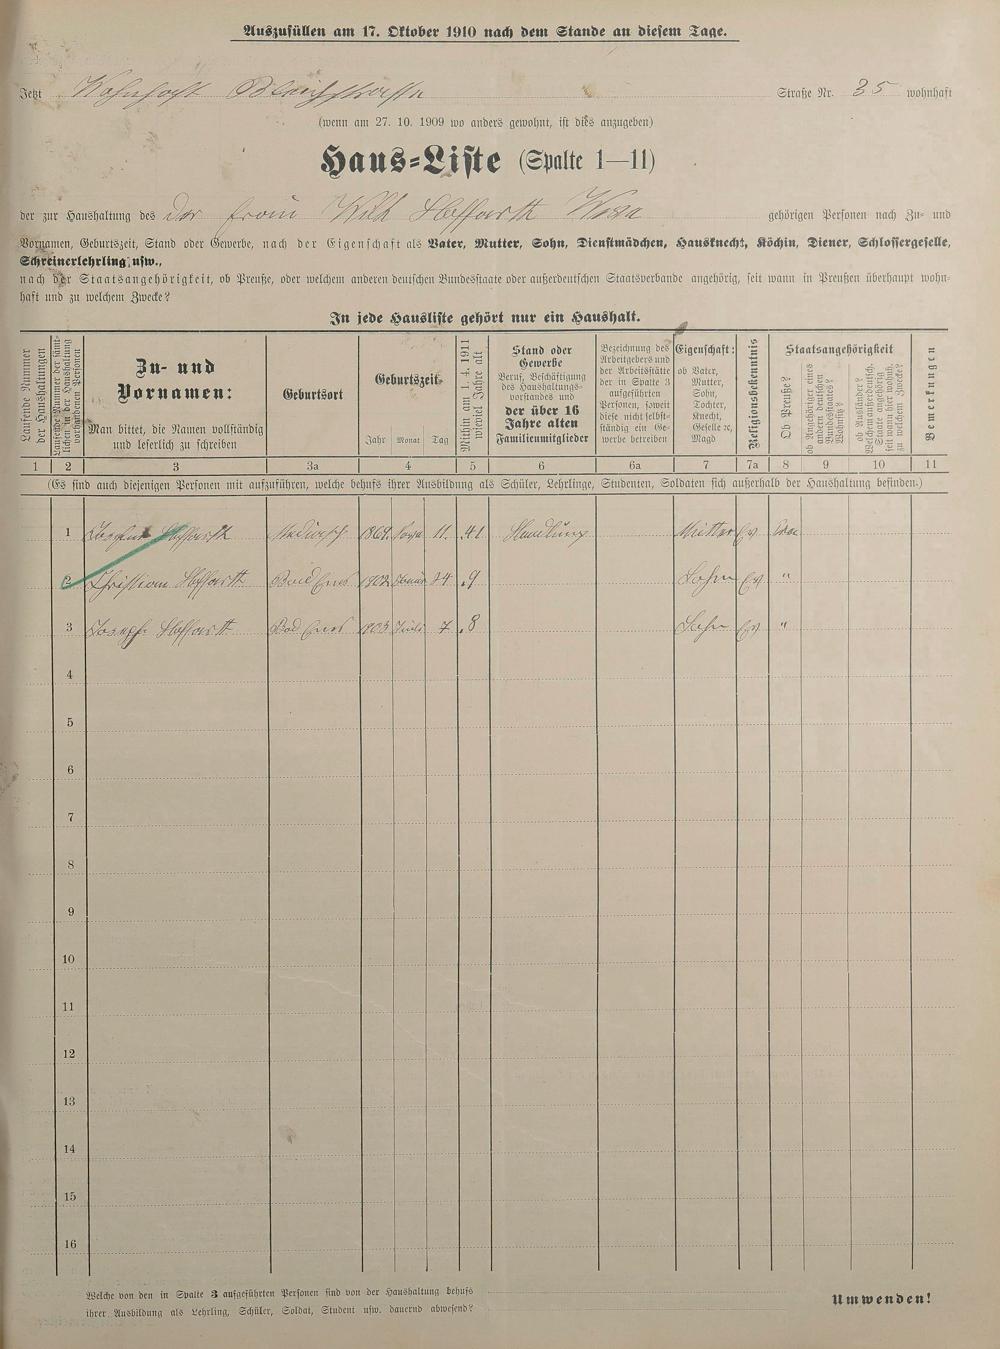 Auszufüllen am 17. Oktober 1910 nach dem Stande an diesem Tage.
Jetzt Wohnhaft Bleichstrasse Straße Nr. 35 wohnhaft
(wenn am 27. 10. 1909 wo anders gewohnt, ist dies anzugeben)
Haus-Liste (Spalte 1—11)
der zur Haushaltung des Der Frau Wilh gehörigen Personen nach Zu- und
Vornamen, Geburtszeit, Stand oder Gewerbe, nach der Eigenschaft als Vater, Mutter, Sohn, Dienstmädchen, Hausknecht, Köchin, Diener, Schlossergeselle,
Schreinerlehrling usw.,
nach der Staatsangehörigkeit, ob Preuße, oder welchem anderen deutschen Bundesstaate oder außerdeutschen Staatsverbande angehörig, seit wann in Preußen überhaupt wohn-
haft und zu welchem Zwecke?
In jede Hausliste gehört nur ein Haushalt.
Laufende Nummer
der Haushaltungen
Laufende Nummer der sämt-
lichen in der Haushaltung
vorhandenen Personen
Zu- und
Vornamen:
Man bittet, die Namen vollständig
und leserlich zu schreiben
Geburtsort
Geburtszeit
Jahr Monat Tag
Mithin am 1. 4. 1911
wieviel Jahre alt
Stand oder
Gewerbe
Beruf, Beschäftigung
des Haushaltungs-
vorstandes und
der über 16
Jahre alten
Familienmitglieder
Bezeichnung des
Arbeitgebers und
der Arbeitsstätte
der in Spalte 3
aufgeführten
Personen, soweit
diese nicht selbst-
ständig ein Ge-
werbe betreiben
Eigenschaft:
ob Vater,
Mutter,
Sohn,
Tochter,
Knecht,
Geselle ec,
Magd
Religionsbekenntnis
Staatsangehörigkeit
Ob Preuße?
ob Angehöriger eines
andern deutschen
Bundesstaates?
Wohnsitz?
ob Ausländer?
Welchem außerdeutsch.
Staate angehörig,
seit wann hier wohnh.
zu welchem Zwecke?
Bemerkungen
1 2 3 3a 4 5 6 6a 7 7a 8 9 10 11
(Es sind auch diejenigen Personen mit aufzuführen, welche behufs ihrer Ausbildung als Schüler, Lehrlinge, Studenten, Soldaten sich außerhalb der Haushaltung befinden.)
1 1869 11. 41 Handlung Mutter Ev
2 Christian Bad Ems 1902 24 9 Sohn Ev "
3 Joseph Bad Ems 1903 Juli 7 8 Sohn Ev "
4
5
6
7
8
9
10
11
12
13
14
15
16
Welche von den in Spalte 3 aufgeführten Personen sind von der Haushaltung behufs
ihrer Ausbildung als Lehrling, Schüler, Soldat, Student usw. dauernd abwesend?
Umwenden!